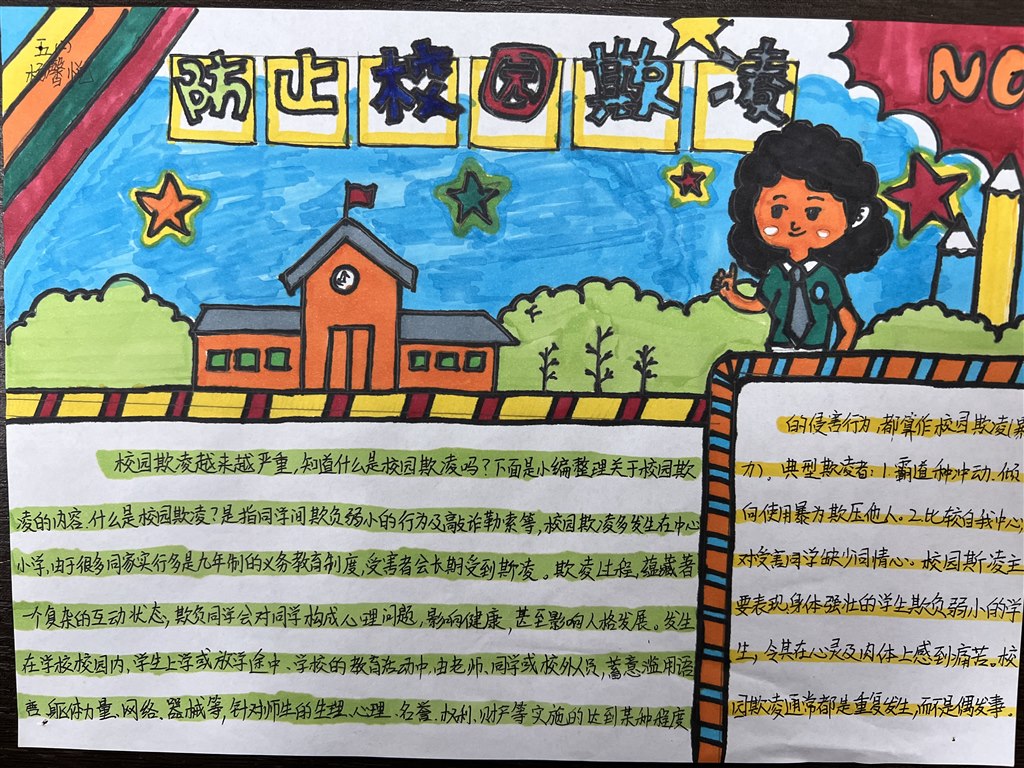 杨馨悦
防止校园欺凌
NO
校园欺凌越来越严重,知道什么是校园欺凌吗?下面是小编整理关于校园欺
凌的内容.什么是校园欺凌?是指同学间欺负弱小的行为及敲诈勒索等,校园欺凌多发生在中心
小学,由于很多国家实行多是九年制的义务教育制度,受害者会长期受到斯凌。欺凌过程,蕴藏着
一个复杂的互动状态,欺负同学会对同学构成心理问题,影响健康,甚至影响人格发展。发生
在学校校园内,学生上学或放学途中、学校的教育活动中,由老师、同学或校外人员,蓄意滥用语
言、躯体力量、网络、器械等,针对师生的生理、心理、名誉、权利、财产等实施的达到某种程度
的侵害行为,都算作校园欺凌(暴
力)。典型欺凌者:1.霸道种冲动.倾
向使用暴为欺压他人。2.比较自我中心,
对受害同学缺少同情心。校园斯凌主
要表现身体强壮的学生欺负弱小的学
生,令其在心灵及肉体上感到痛苦。校
园欺凌通常都是重复发生,而不是偶发事。